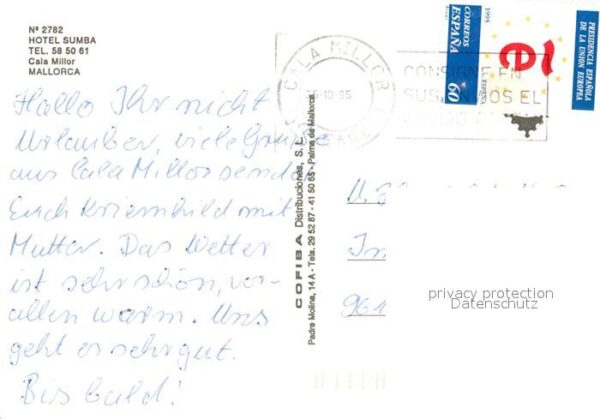 Nº 2782
HOTEL SUMBA
TEL. 58 50 61
Cala Millor
MALLORCA
Hallo Ihr nicht
Urlauber, viele Grüße
aus Cala Millor senden
Euch mit
Mutter. Das Wetter
ist sehr schön, vor
allen warm. Uns
geht es sehr gut.
Bis bald!
COFIBA Distribuciones, S. L.
Padre Molina, 14 A - Tels. 29 52 87 - 41 50 65 - Palma de Mallorca
CALA MILLOR
10-95
CONSIGNE EN
SUS ENVIOS EL
CORREOS
ESPAÑA
1995
60
PRESIDENCIA ESPAÑOLA
DE LA UNION EUROPEA
privacy protection
Datenschutz